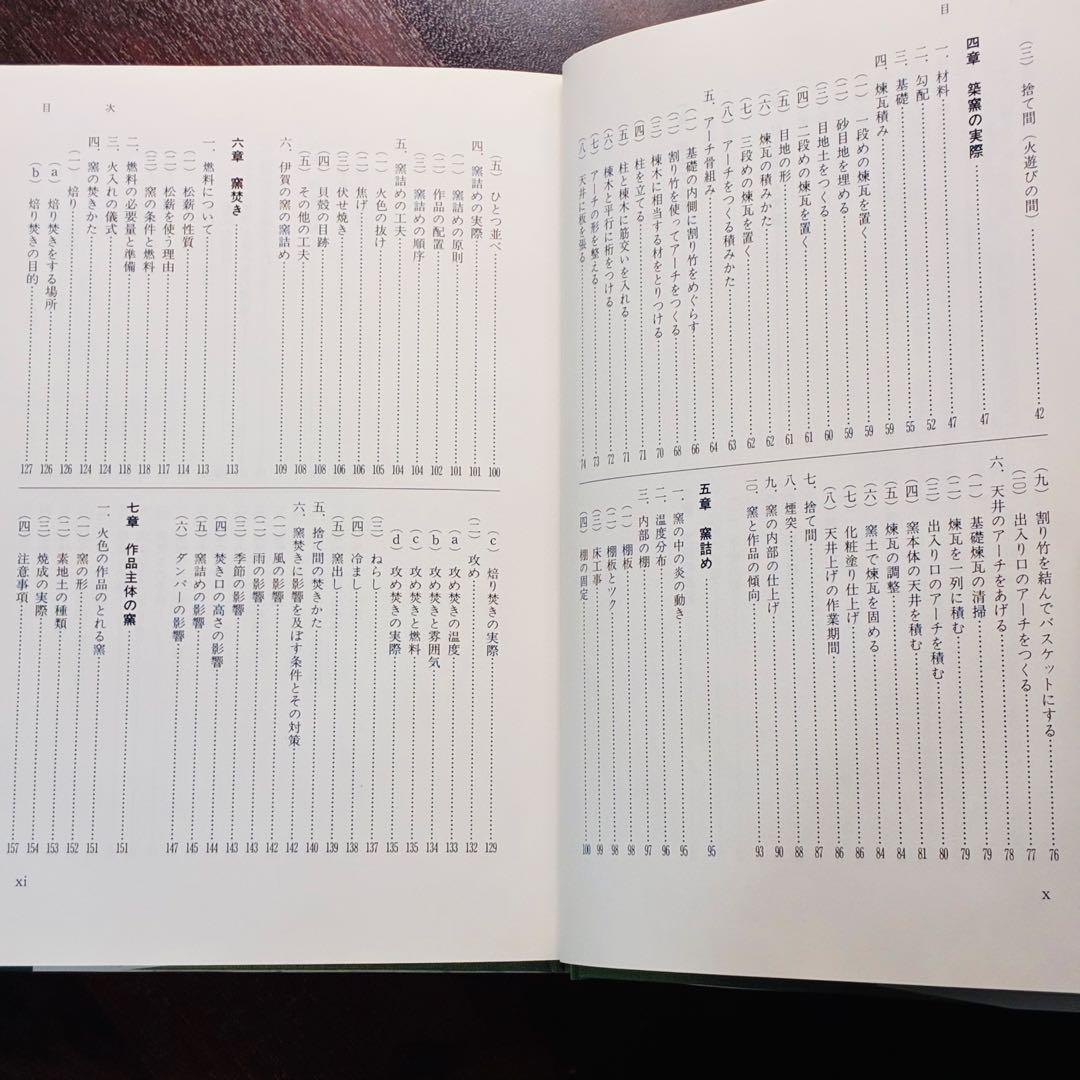 目
(三) 捨て間(火遊びの間)……42
四章 築窯の実際……47
一、材料……47
二、勾配……52
三、基礎……55
四、煉瓦積み……59
(一) 一段めの煉瓦を置く……59
(二) 砂目地を埋める……59
(三) 目地土をつくる……60
(四) 二段めの煉瓦を置く……61
(五) 目地の形……61
(六) 煉瓦の積みかた……62
(七) 三段めの煉瓦を置く……62
(八) アーチをつくる積みかた……63
五、アーチ骨組み……64
(一) 基礎の内側に割り竹をめぐらす……66
(二) 割り竹を使ってアーチをつくる……68
(三) 棟木に相当する材をとりつける……70
(四) 柱を立てる……71
(五) 柱と棟木に筋交いを入れる……71
(六) 棟木と平行に桁をつける……72
(七) アーチの形を整える……73
(八) 天井に板を張る……74
(九) 割り竹を結んでバスケットにする……76
(一〇) 出入り口のアーチをつくる……77
六、天井のアーチをあげる……78
(一) 基礎煉瓦の清掃……79
(二) 煉瓦を一列に積む……79
(三) 出入り口のアーチを積む……80
(四) 窯本体の天井を積む……81
(五) 煉瓦の調整……84
(六) 窯土で煉瓦を固める……84
(七) 化粧塗り仕上げ……86
(八) 天井上げの作業期間……86
七、捨て間……87
八、煙突……88
九、窯の内部の仕上げ……90
一〇、窯と作品の傾向……93
五章 窯詰め……95
一、窯の中の炎の動き……95
二、温度分布……96
三、内部の棚……97
(一) 棚板……98
(二) 棚板とツク……98
(三) 床工事……99
(四) 棚の固定……100
x
目次
(五) ひとつ並べ……100
四、窯詰めの実際……101
(一) 窯詰めの原則……101
(二) 作品の配置……102
(三) 窯詰めの順序……104
五、窯詰めの工夫……104
(一) 火色の抜け……105
(二) 焦げ……106
(三) 伏せ焼き……106
(四) 貝殻の目跡……108
(五) その他の工夫……108
六、伊賀の窯の窯詰め……109
六章 窯焚き……113
一、燃料について……113
(一) 松薪の性質……114
(二) 松薪を使う理由……117
(三) 窯の条件と燃料……118
二、燃料の必要量と準備……118
三、火入れの儀式……124
四、窯の焚きかた……124
(一) 焙り……126
a) 焙り焚きをする場所……126
b) 焙り焚きの目的……127
c) 焙り焚きの実際……129
(二) 攻め……132
a) 攻め焚きの温度……133
b) 攻め焚きと雰囲気……134
c) 攻め焚きと燃料……135
d) 攻め焚きの実際……135
(三) ねらし……137
(四) 冷まし……138
(五) 窯出し……139
五、捨て間の焚きかた……140
六、窯焚きに影響を及ぼす条件とその対策……142
(一) 風の影響……142
(二) 雨の影響……143
(三) 季節の影響……143
(四) 焚き口の高さの影響……144
(五) 窯詰めの影響……145
(六) ダンパーの影響……147
七章 作品主体の窯……151
一、火色の作品のとれる窯……151
(一) 窯の形……152
(二) 素地土の種類……153
(三) 焼成の実際……154
(四) 注意事項……157
xi